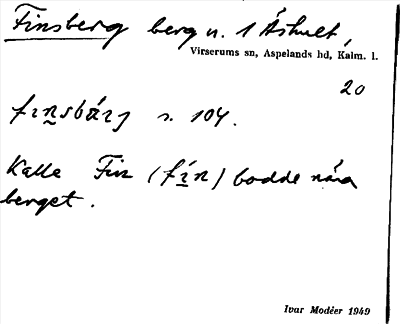 Finsberg berg u. 1 Åshult,
Virserums sn, Aspelands hd, Kalm. l.
20
s. 104.
Kalle Fin (fín) bodde nära
berget.
Ivar Modéer 1949